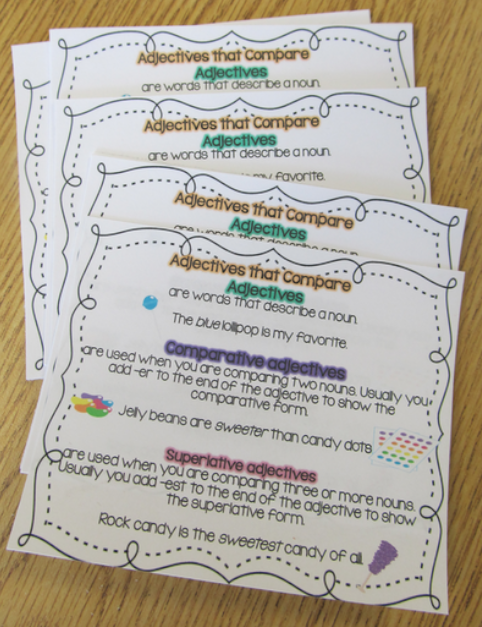 Adjectives that Compare
Adjectives
are words that describe a noun.
Adjectives that Compare
Adjectives
are words that describe a noun.
my favorite.
Adjectives that Compare
Adjectives
are words that describe a noun.
Adjectives that Compare
Adjectives
are words that describe a noun.
The blue lollipop is my favorite.
Comparative adjectives
are used when you are comparing two nouns. Usually you
add -er to the end of the adjective to show the
comparative form.
Jelly beans are sweeter than candy dots
Superlative adjectives
are used when you are comparing three or more nouns.
Usually you add -est to the end of the adjective to show
the superlative form.
Rock candy is the sweetest candy of all.